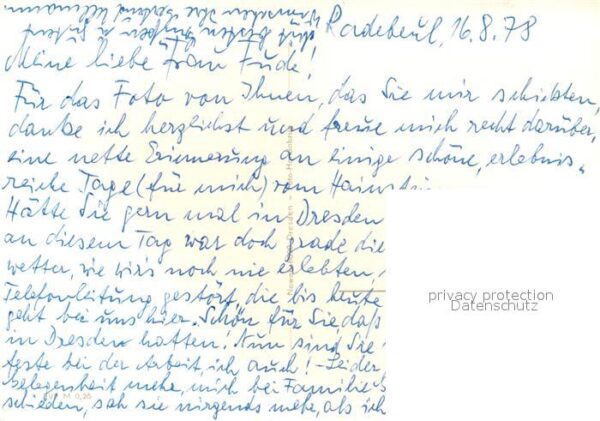 Radebeul, 16.8.78
Meine liebe Frau Fude!
Für das Foto von Ihnen, das Sie mir schickten,
danke ich herzlichst und freue mich recht darüber,
eine nette Erinnerung an einige schöne, erlebnis-
reiche Tage (für mich) vom
Hätte Sie gern mal in Dresden
an diesem Tag war doch grade die
wetter, wie wir's noch nie erlebten,
Telefonleitung gestört, die bis heute
geht bei uns hier. Schön für Sie daß
in Dresden hatten! Nun sind Sie
feste bei der Arbeit, ich auch! - Leider
Gelegenheit mehr, mich bei Familie
schieden, sah sie nirgends mehr, als ich
privacy protection
Datenschutz
M 0,20